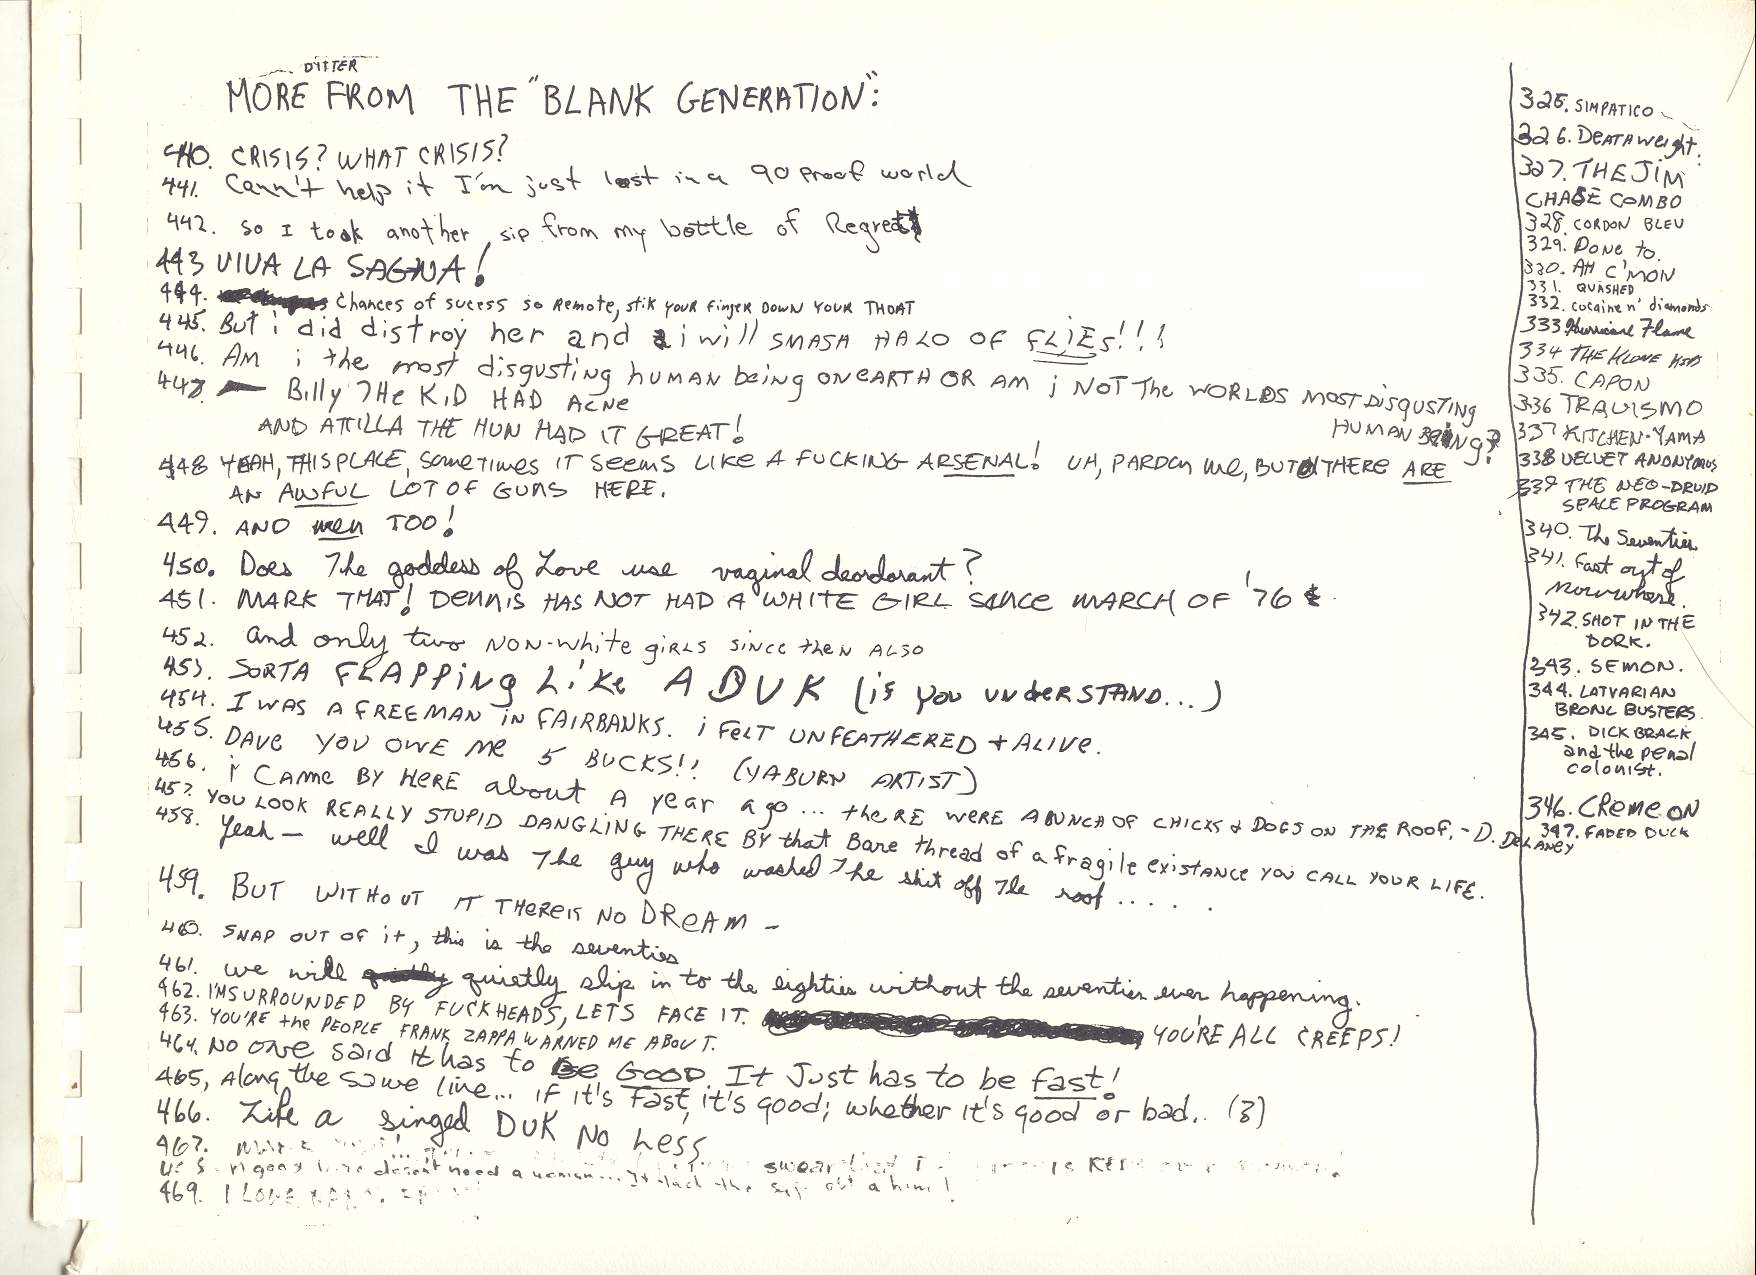 DITTER
MORE FROM THE "BLANK GENERATION":
440. CRISIS? WHAT CRISIS?
441. Cann't help it I'm just lost in a 90 proof world
442. so I took another sip from my bottle of Regret
443 VIVA LA SAGNA!
444. Chances of sucess so Remote, stik your finger DOWN YOUR THOAT
445. But i did distroy her and i will SMASH HALO OF FLIES!!!
446. Am i the most disgusting human being ON EARTH OR AM i NOT THE WORLDS MOST DISGUSTING
HUMAN BEING?
447. Billy THe KiD HAD ACNe
AND ATTILLA THE HUN HAD IT GREAT!
448 YEAH, THIS PLACE, SomeTimes IT SeemS LIKE A FUCKING ARSENAL! UH, PARDON me, BUT THERe ARE
AN AWFUL LOT OF GUNS HERE.
449. AND men TOO!
450. Does The goddess of Love use vaginal deordorant?
451. MARK THAT! DeNNIS HAS NOT HAD A WHITE GIRL SINCE MARCH OF '76
452. and only two NON-White giRLS SINCE theN ALSO
453. SORTA FLAPPiNg Like A DUK (if you UNdeRSTAND...)
454. I WAS A FREEMAN iN FAIRBANKS. i FeLT UNFEATHERED + ALIVe.
455. DAVe YOU OWE Me 5 BUCKS!! (YABURN ARTIST)
456. i CAMe BY HeRE about A year ago... theRE WERE A BUNCH OF CHICKS & DOGS ON THE ROOF. - D. DeLANey
457. YOU LOOK REALLY STUPID DANGLING THERE BY that Bare thread of a fragile existance YOU CALL YOUR LIFE.
458. Yeah - well I was The guy who washed The shit off The roof.....
459. BUT WITHOUT IT THeRe IS NO DReAM -
460. SNAP OUT OF it, this is the seventies
461. we will quietly slip in to the eighties without the seventies ever happening.
462. I'M SURROUNDED BY FUCKHEADS, LETS FACE IT. YOU'RE ALL CREEPS!
463. YOU'RE the PEOPLE FRANK ZAPPA WARNED ME ABOUT.
464. NO ONE said it has to Be GOOD. It Just has to be fast!
465, Along the same line... if it's fast, it's good; whether it's good or bad.. (3)
466. Life a singed DUK NO Less
467.
need a woman...
469. I LOVE
325. SIMPATICO
326. DeATHweight.
327. THE JIM
CHASE COMBO
328. CORDON BLEU
329. DONe to.
330. AH C'MON
331. QUASHED
332. cocaine n' diamonds
333 Hurricane Flame
334 THE KLONE
335. CAPON
336 TRAVISMO
337 KITCHEN-YAMA
338 VELVET ANONYMOUS
339 THE NEO-DRUID
SPACE PROGRAM
340. The Seventies
341. Fast out of
Nowwhere.
342. SHOT IN THE
DORK.
343. SEMON.
344. LATVARIAN
BRONC BUSTERS.
345. DICK BRACK
and the penal
colonist.
346. CReMe ON
347. FADED DUCK